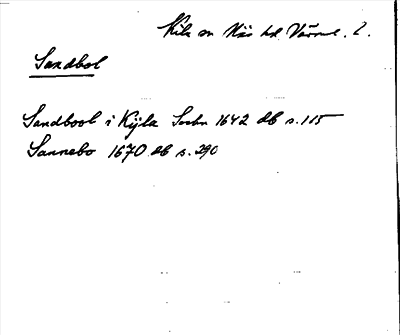 Kila sn Näs hd Värml. l.
Sandbol
Sandbool i Kijla Sochn 1642 db s. 115
Sannebo 1670 db s. 290